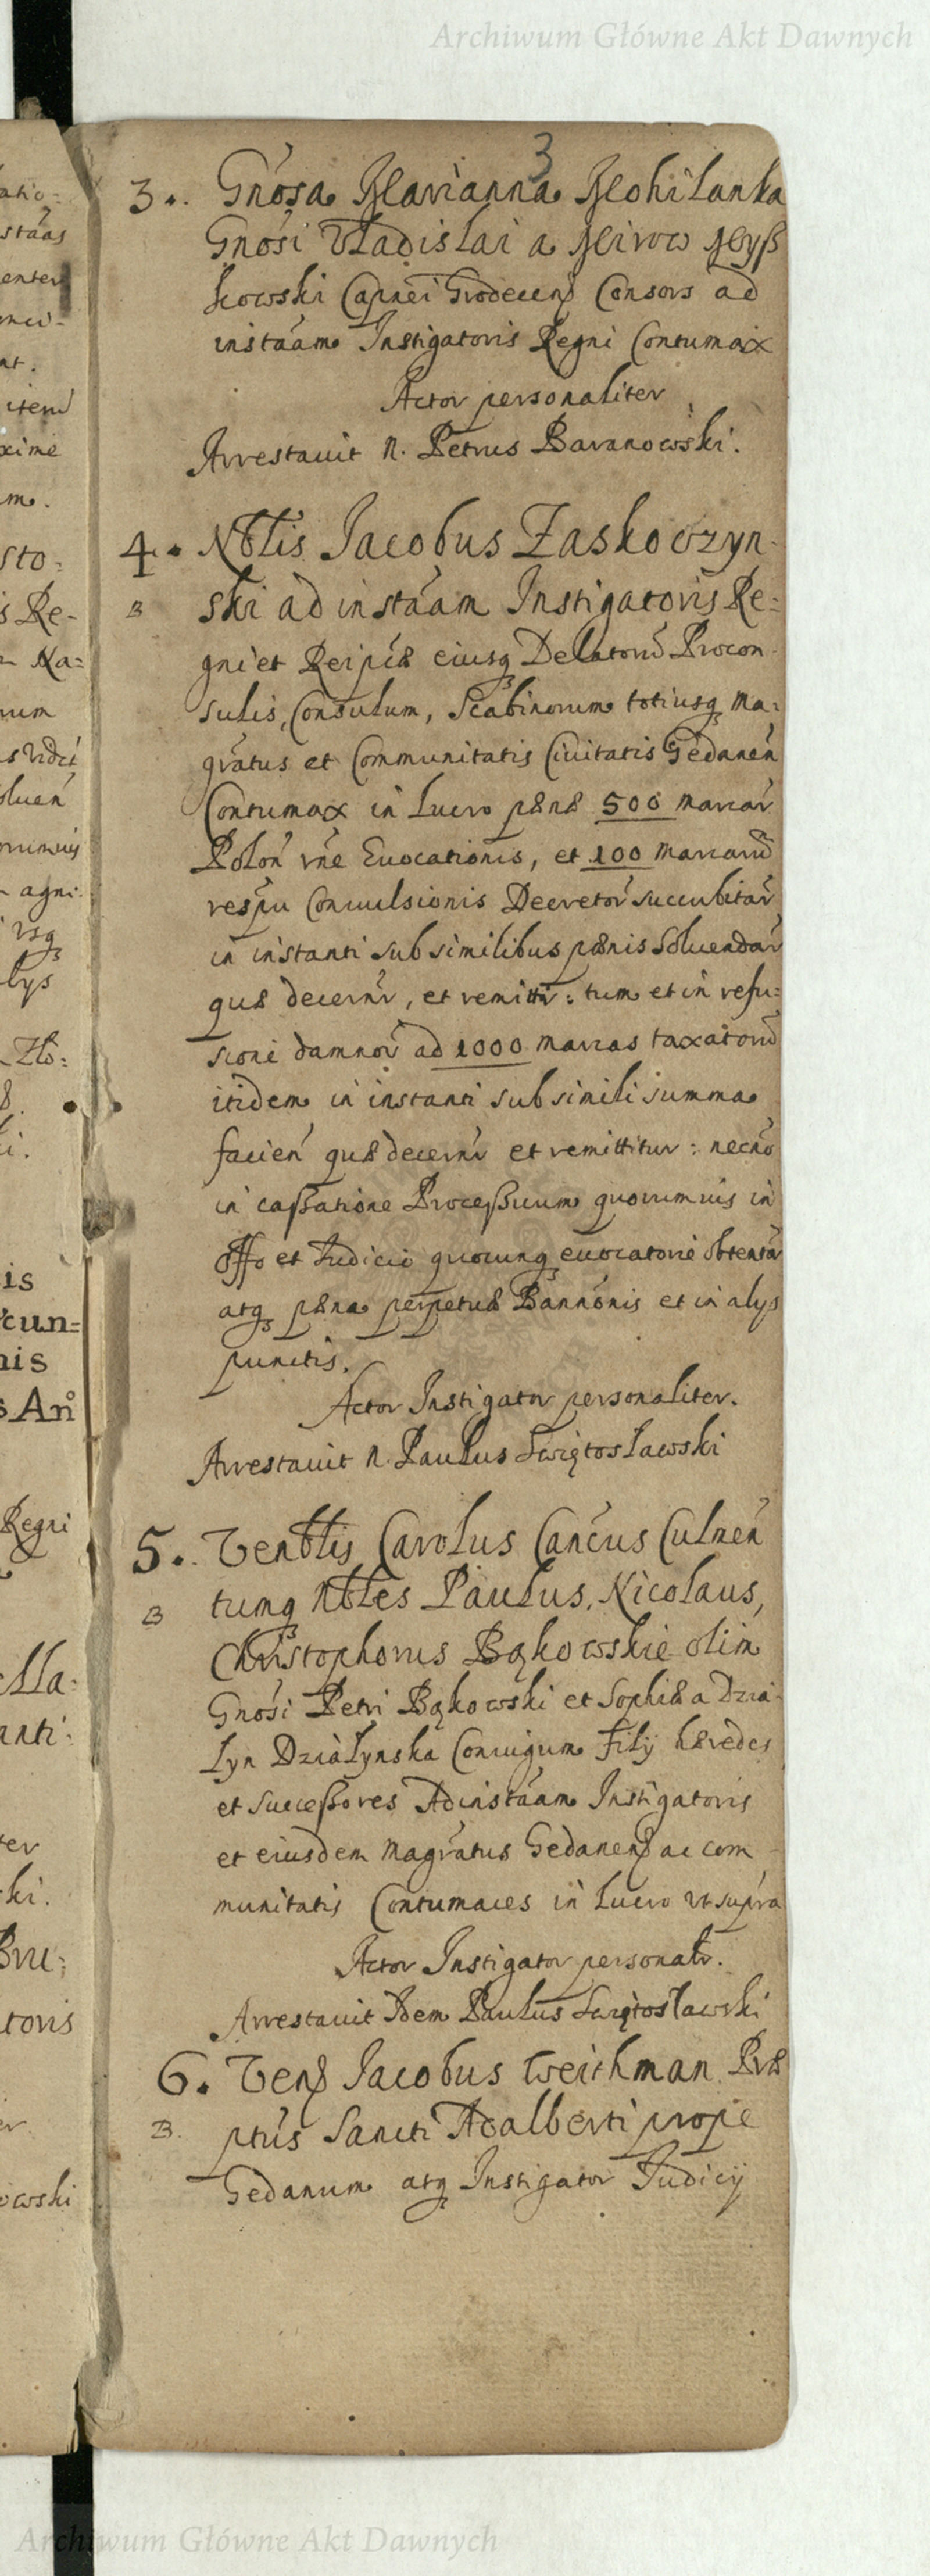 Archiwum Główne Akt Dawnych
3
3. Gnósa Marianna Mohilanka
Gnósi Vladislai a Mirow Mysz
kowski Capnei Grodecen Consors ad
instáam Instigatoris Regni Contumax
Actor personaliter
Arrestauit N. Petrus Baranowski.
4. Nblis Jacobus Zaskowzyn-
B
ski ad instáam Instigatoris Re=
gni et Reipcæ eiusq Delatorũ Procon
sulis, Consulum, Scabinorum totiusq Ma:
gratus et Communitatis Ciuitatis Gedanen
Contumax in lucro pænæ 500 marcar
Polon rne Euocationis, et 100 marcarũ
respu Conuulsionis Decretor succubitar
in instanti sub similibus pænis soluendar
quæ decernr, et remittr: tum et in refu=
sioni damnor ad 1000 marcas taxatorũ
itidem in instanti sub simili summa
facien quæ decernr et remittitur: necno
in cassatione Processuum quorumuis in
offo et Judicio quocunq euocatorie obtentor
atq pæna perpetuæ Bannonis et in alys
punctis.
Actor Instigator personaliter.
Arrestauit N. Paulus Swiętosławski
5. Venblis Carolus Cancus Culnen
B
tumq Nbles Paulus, Nicolaus,
Christophorus Bąkowskie olim
Gnosi Petri Bąkowski et Sophiæ a Dzia
łyn Dziáłynska Coniugum filij hæredes
et successores Ad instáam Instigatoris
et eiusdem Magratus Gedanen ac com
munitatis Contumaces in lucro vt supra
Actor Instigator personalr.
Arrestauit Idem Paulus Swiętosławski
6. Ven Jacobus Weichman Præ
B.
ptus Sancti Adalberti prope
Gedanum atq Instigator Judicij
Archiwum Główne Akt Dawnych